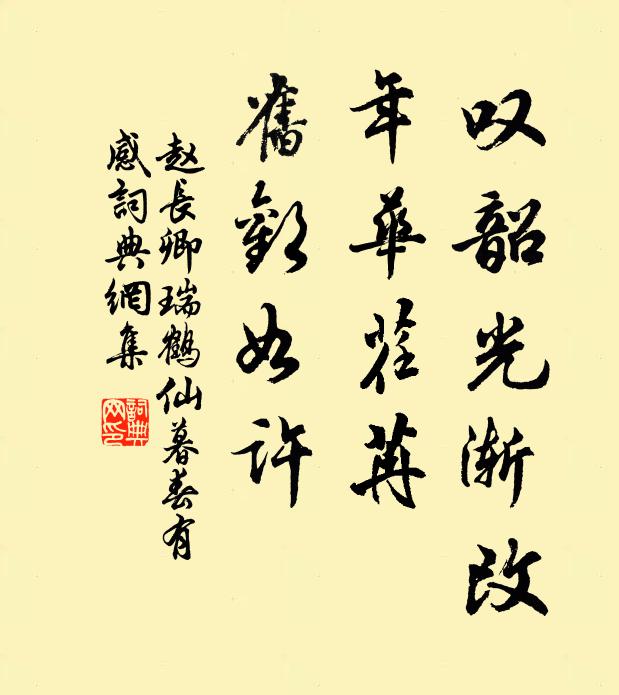 叹韶光渐改
年华荏苒
旧欢如许
赵长卿瑞鹤仙暮春有
感词典网集
词典网印